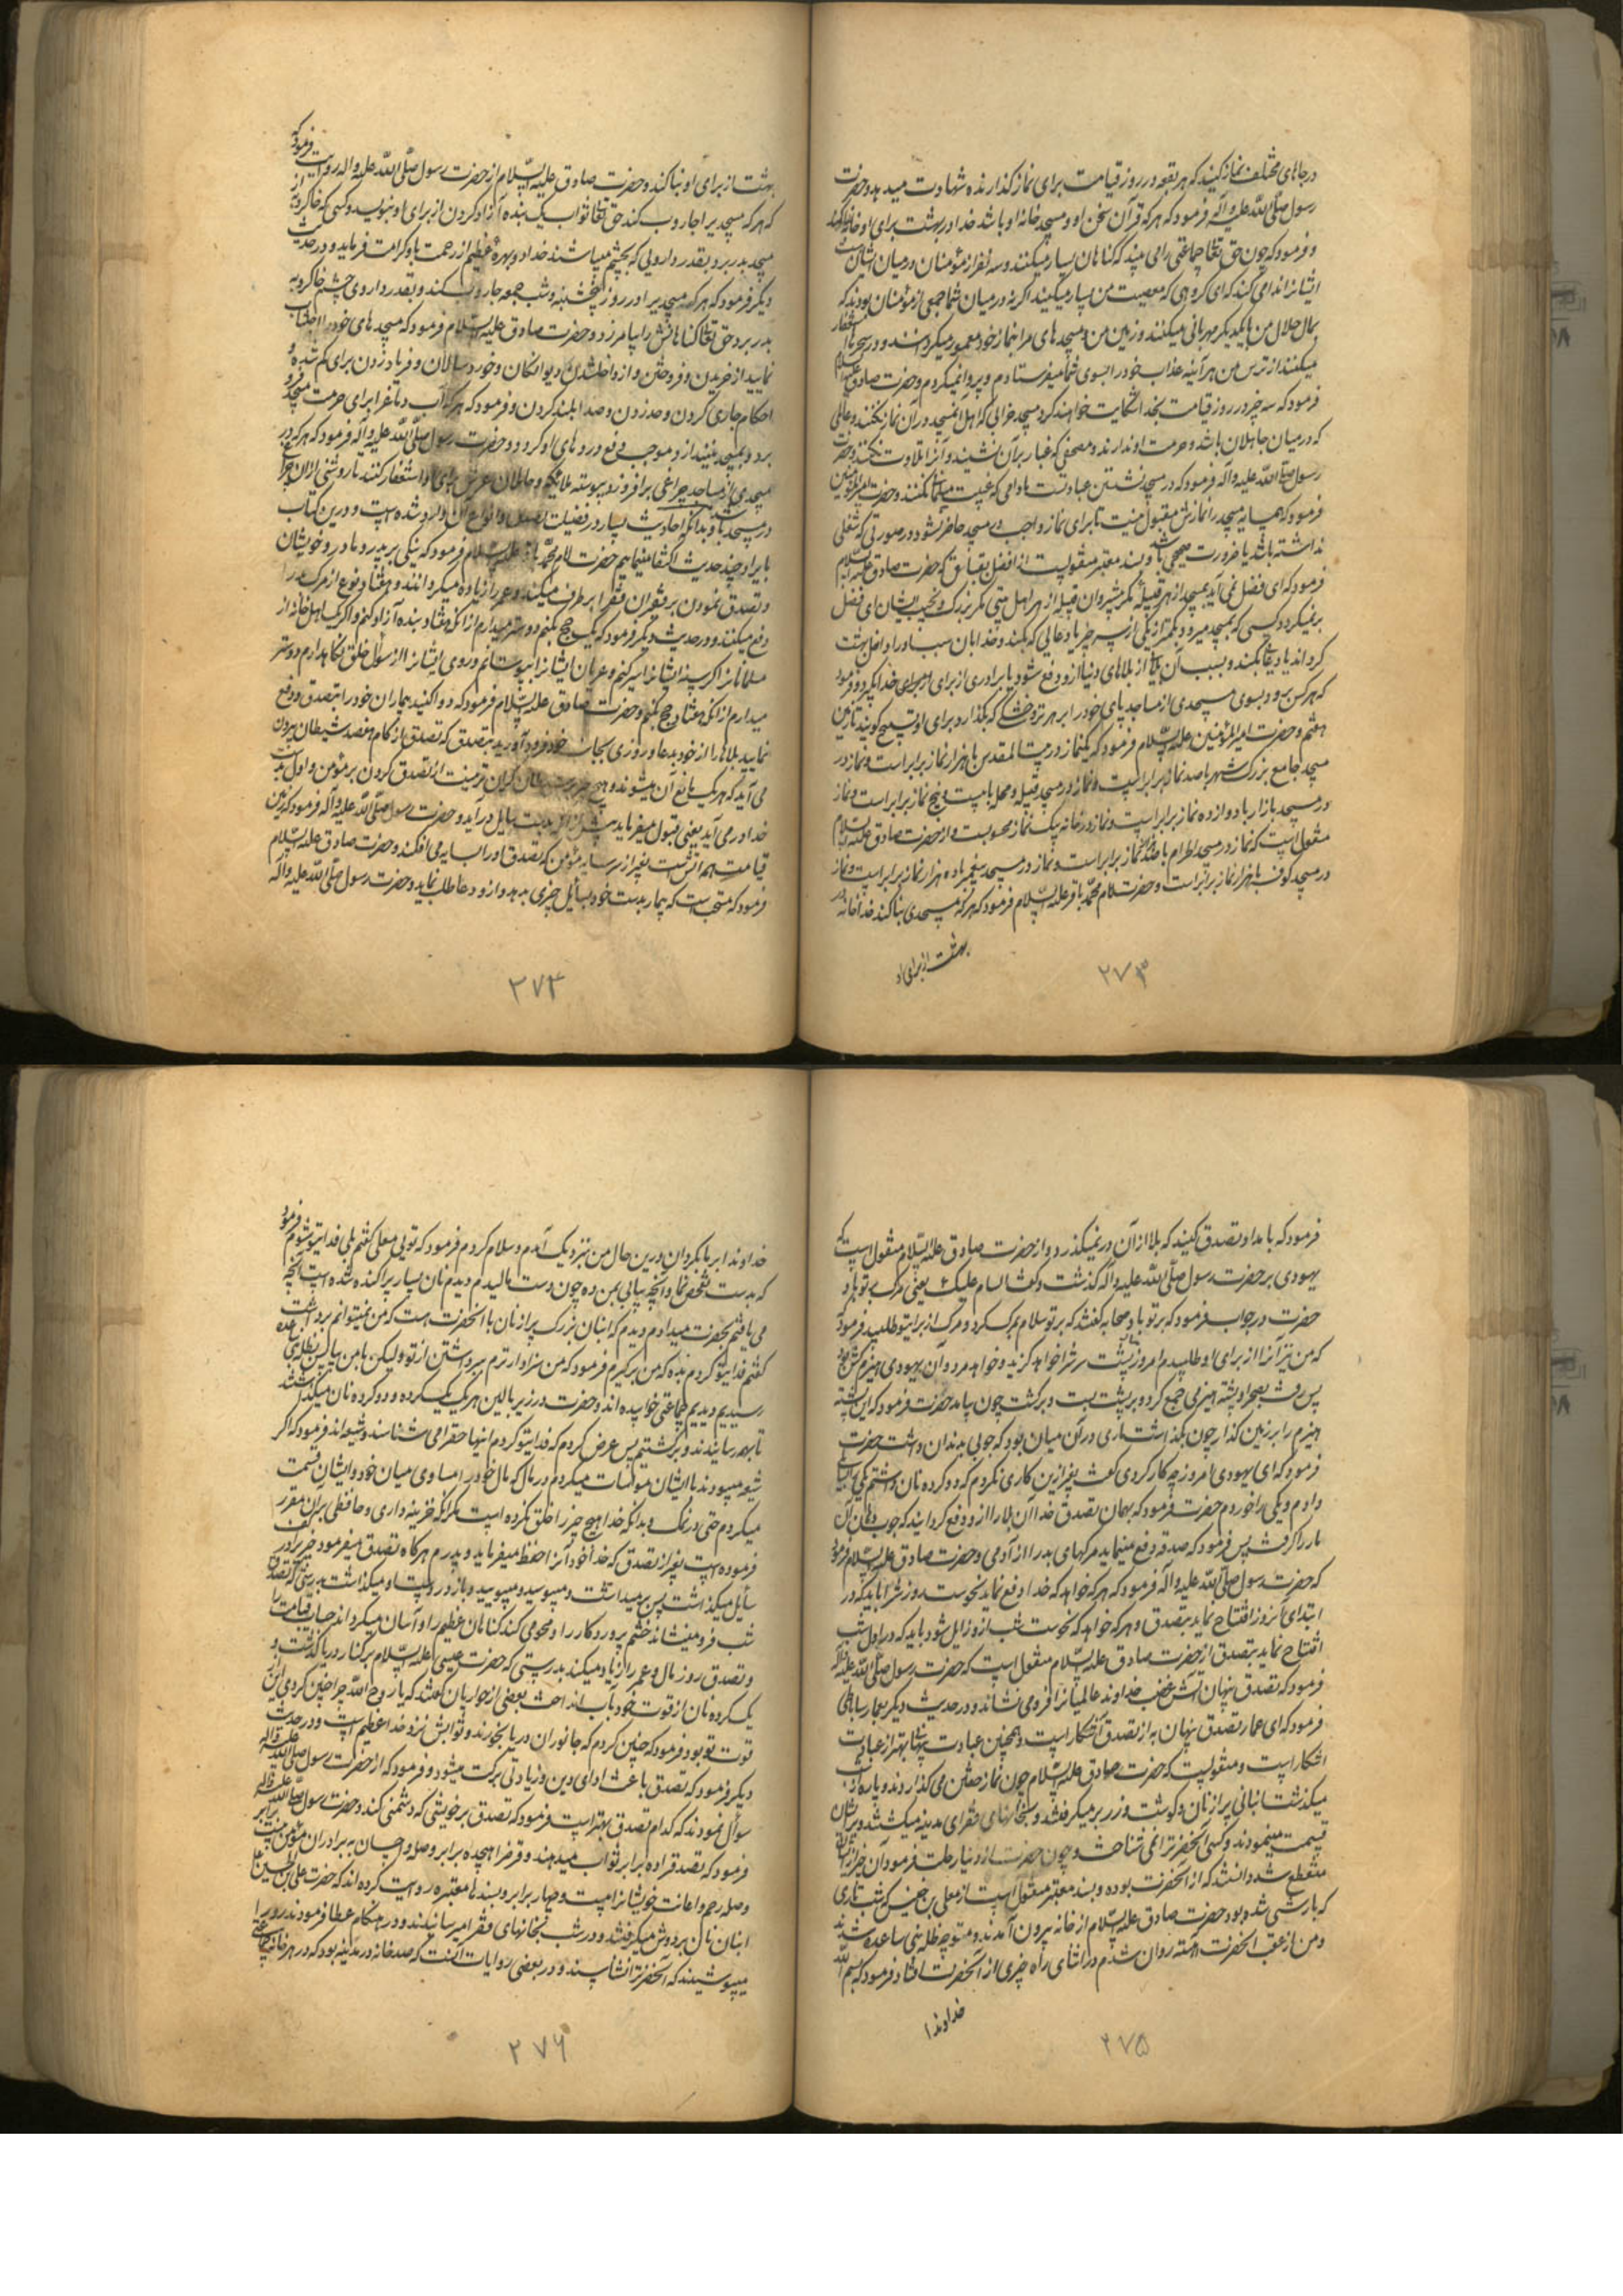 در جاهای مختلف نماز کنید که هر بقعه در روز قیامت برای نماز گذارنده شهادت میدهد و حضرت
رسول صلّی الله علیه وآله فرمود که هر که قرآن سخن او و مسجد خانه او باشد خدا در بهشت برای او خانه بنا کند
و فرمود که چون حق تعالی جماعتی را می بیند که گناهان بسیار میکنند و سه نفر از مؤمنان در میان ایشان هست
ایشانرا ندا می کند که ای گروهی که معصیت من بسیار میکنید اگر نه در میان شما جمعی از مؤمنان بودند که
بمال حلال من با یکدیگر مهربانی میکنند و زمین من و مسجد های مرا بنماز خود معمور میگردانند و در سحرها استغفار
میکنند از ترس من هر آینه عذاب خود را بسوی شما میفرستادم و پروا نمیکردم و حضرت صادق علیه السلام
فرمود که سه چیز در روز قیامت بخدا شکایت خواهند کرد مسجد خرابی که اهل آنمسجد در آن نماز نکنند و عالمی
که در میان جاهلان باشد و حرمت او ندارند و مصحفی که غبار بر آن نشیند و آنرا تلاوت نکنند و حضرت
رسول صلّی الله علیه وآله فرمود که در مسجد نشستن عبادتست مادامی که غیبت مسلمانی نکنند و حضرت امیر المؤمنین
فرمود که همسایه مسجد را نمازش مقبول نیست تا برای نماز واجب در مسجد حاضر نشود در صورتی که شغلی
نداشته باشد یا ضرورت صحیحی باشد و بسند معتبر منقولست از افضل بقباق که حضرت صادق علیه السلام
فرمود که ای فضل نمی آید بمسجد از هر قبیله مگر پیشروان قبیله از هر اهل بیتی مگر بزرگ و نجیب ایشان ای فضل
بر نمیگردد کسی که بمسجد میرود بکمتر از یکی از سه چیز یا دعایی که بکند و خدا بآن سبب او را داخل بهشت
گرداند یا دعائی بکند و بسبب آن بلائی از بلاهای دنیا از او دفع شود یا برادری از برای خدا بگیرد و فرمود
که هر کس برود بسوی مسجدی از مساجد پای خود را بر هر تر و خشکی که بگذارد برای او تسبیح گویند تا زمین
هفتم و حضرت امیر المؤمنین علیه السلام فرمود که یکنماز در بیت المقدس با هزار نماز برابر است و نماز در
مسجد جامع بزرگ شهر با صد نماز برابر است و نماز در مسجد قبیله و محله با بیست و پنج نماز برابر است و نماز
در مسجد بازار با دوازده نماز برابر است و نماز در خانه یک نماز محسوبست و از حضرت صادق علیه السلام
منقول است که نماز در مسجد الحرام با صد هزار نماز برابر است و نماز در مسجد پیغمبر با ده هزار نماز برابر است و نماز
در مسجد کوفه با هزار نماز برابر است و حضرت امام محمّد باقر علیه السلام فرمود که هر که مسجدی بنا کند خدا خانه در
بهشت از برای او
۲۷۳
بهشت از برای او بنا کند و حضرت صادق علیه السّلام از حضرت رسول صلّی الله علیه واله روایت فرموده
که هر که مسجدیرا جاروب کند حق تعالی ثواب یک بنده آزاد کردن از برای او بنویسد و کسی که خاکروبه از
مسجد بدر برد بقدر دارویی که بچشم میپاشند خدا دو بهره عظیم از رحمت باو کرامت فرماید و در حدیث
دیگر فرمود که هر که مسجدیرا در روز پنجشنبه و شب جمعه جاروب کند و بقدر داروی چشم خاکروبه
بدر برد حق تعالی گناهانش را بیامرزد و حضرت صادق علیه السلام فرمود که مسجد های خود را اجتناب
نمایید از خریدن و فروختن و از داخل شدن دیوانگان و خورد سالان و فریاد زدن برای گم شده و
احکام جاری کردن و حد زدن و صدا بلند کردن و فرمود که هر که آب دماغ را برای حرمت مسجد فرو
برد و بمسجد نیندازد موجب دفع دردهای او گردد و حضرت رسول صلّی الله علیه وآله فرمود که هر که در
مسجدی از مساجد چراغی بر افروزد پیوسته ملائکه و حاملان عرش برای او استغفار کنند تا روشنی از آن چراغ
در مسجد باشد و بدانکه احادیث بسیار در فضیلت تصدق و انواع آن وارد شده است و در این کتاب
بایراد چند حدیث اکتفا مینماییم حضرت امام محمّد باقر علیه السلام فرمود که نیکی بر پدر و مادر و خویشان
و تصدق نمودن بر فقیران فقر را بر طرف میکند و عمر را زیاده میگردانند و هفتاد نوع از مرگ بد را
دفع میکنند و در حدیث دیگر فرمود که یک حج بکنم دوستر میدارم از آنکه هفتاد بنده آزاد کنم و اگر یک اهل خانه از
مسلمانانرا گرسنه ایشانرا سیر کنم و عریان ایشانرا بپوشانم و روی ایشانرا از سؤال خلق نگاهدارم دوستر
میدارم از آنکه هفتاد حج بکنم و حضرت صادق علیه السلام فرمود که دوا کنید بیماران خود را بتصدق و دفع
نمایید بلاها را از خود بدعا و روزی بجانب خود فرود آورید بتصدق که تصدق از کام هفصد شیطان بیرون
می آید که هر یک مانع آن میشوند و هیچ چیز بر شیطان گران تر نیست از تصدق کردن بر مؤمن و اول بدست
خدا در می آید یعنی قبول میفرماید پیش از آنکه بدست سایل در آید و حضرت رسول صلّی الله علیه وآله فرمود که زمین
قیامت همه آتشست بغیر از سر سایه مؤمن که تصدق او را سایه می افکند و حضرت صادق علیه السلام
فرمود که مستحبّ است که بیمار بدست خود بسائل چیزی بدهد و از او دعا طلب نماید و حضرت رسول صلّی الله علیه وآله
۲۷۴
فرمود که بامداد تصدق کنید که بلا از آن در نمیگذرد و از حضرت صادق علیه السّلام منقول است که
یهودی بر حضرت رسول صلّی الله علیه وآله گذشت و گفت السام علیک یعنی مرگ بر تو باد
حضرت در جواب فرمود که بر تو باد صحابه گفتند که بر تو سلام نکرد و مرگ از برای تو طلبید فرمود
که من نیز آنرا از برای او طلبیدم امروز پشت سرش را خواهد گزید و خواهد مرد و آن یهودی هیزم کش بود
پس رفت بصحرا و پشته هیزمی جمع کرد و بر پشت بست و برگشت چون بیامد حضرت فرمود که این پشته
هیزم را بر زمین گذار چون بگذاشت ماری در آن میان بود که چوبی بدندان داشت حضرت
فرمود که ای یهودی امروز چه کار کردی گفت بغیر ازین کاری نکردم که دو گرده نان داشتم یکی بسائلی
دادم و یکی را خوردم حضرت فرمود که بهمان تصدق خدا آن بلا را از او دفع گردانید که چوب دندان آن
مار را گرفت پس فرمود که صدقه دفع مینماید مرگهای بد را از آدمی و حضرت صادق علیه السّلام فرمود
که حضرت رسول صلّی الله علیه وآله فرمود که هر که خواهد که خدا دفع نماید نحوست روز را باید که در
ابتدای آنروز افتتاح نماید بتصدق و هر که خواهد که نحوست شب از او زایل شود باید که در اول شب
افتتاح نماید بتصدق از حضرت صادق علیه السّلام منقول است که حضرت رسول صلّی الله علیه وآله
فرمود که تصدق پنهان آتش غضب خداوند عالمیانرا فرو می نشاند و در حدیث دیگر بعمار ساباطی
فرمود که ای عمار تصدق پنهان به از تصدق آشکار است و همچنین عبادت پنهان بهتر از عبادت
آشکار است و منقولست که حضرت صادق علیه السّلام چون نماز خفتن می گذاردند و پاره از شب
میگذشت انبانی پر از نان و گوشت و زر بر میگرفتند و بخانهای فقرای مدینه میکشیدند و بر ایشان
قسمت مینمودند و کسی آنحضرترا نمی شناخت و چون حضرت از دنیا رحلت فرمود آن چیز از ایشان
منقطع شد دانستند که از آنحضرت بوده و بسند معتبر منقول است از معلی بن خنیس که شب تاری
که بارشی شده بود حضرت صادق علیه السّلام از خانه بیرون آمدند و متوجه ظله بنی ساعده شدند
و من از عقب آنحضرت آهسته روان شدم در اثنای راه چیزی از آنحضرت افتاد فرمود که بسم الله
خداوندا
۲۷۵
خداوندا بر ما بگردان درین حال من نزدیک آمدم و سلام کردم فرمود که تویی معلی گفتم بلی فدای تو شوم فرمود
که بدست تفحص نما و آنچه بیابی بمن ده چون دست مالیدم دیدم نان بسیار پراکنده شده است آنچه
می یافتم بحضرت میدادم دیدم که انبان بزرگ پر از نان با آنحضرت است که من نمیتوانم برداشت
گفتم فدای تو گردم بده که من برگیرم فرمود که من سزاوار ترم ببرداشتن از تو ولیکن با من بیا که چون بظله بنی ساعده
رسیدیم دیدیم جماعتی خوابیده اند و حضرت در زیر بالین هر یک یک گرده و دو گرده نان میگذاشتند
تا بهمه رسانیدند و برگشتیم پس عرض کردم که فدای تو گردم اینها حق را می شناسند و شیعه اند فرمود که اگر
شیعه میبودند با ایشان مواسات میکردم در مال که مال خود را مساوی میان خود و ایشان قسمت
میکردم حتی در نمک و بدانکه خدا هیچ چیز را خلق نکرده است مگر آنکه خزینه داری و حافظی بر آن مقرر
فرموده است بغیر از تصدق که خدا خود آنرا حفظ میفرماید و پدرم هر گاه تصدق میفرمود چیزی در کف
سایل میگذاشت پس بر میداشت و میبوسید و میبویید و باز در دست او میگذاشت بدرستی که تصدق
شب فرو مینشاند خشم پروردگار را و محو می کند گناهان عظیم را و آسان میگرداند حساب قیامت را
و تصدق روز مال و عمر را زیاد میکند بدرستی که حضرت عیسی علیه السّلام بر کنار دریا گذشت و
یک گرده نان از قوت خود بآب انداخت بعضی از حواریان گفتند که یا روح الله چرا چنین کردی این از
قوت تو بود فرمود که چنین کردم که جانوران دریا بخورند و ثوابش نزد خدا عظیم است و در حدیث
دیگر فرمود که تصدق باعث ادای دین و زیادتی برکت میشود و فرمود که از حضرت رسول صلّی الله علیه وآله
سؤال نمودند که کدام تصدق بهتر است فرمود که تصدق بر خویشی که دشمنی کند و حضرت رسول صلّی الله علیه وآله
فرمود که تصدق را ده برابر ثواب میدهند و قرض را هیجده برابر و صله و احسان به برادران مؤمن بیست برابر
و صله رحم و اعانت خویشانرا بیست و چهار برابر و بسندها معتبره روایت کرده اند که حضرت علی بن الحسین
انبان نان بر دوش میگرفتند و در شب بخانهای فقرا میرسانیدند و در هنگام عطا فرمودند رو را
میپوشیدند که آنحضرترا نشناسند و در بعضی روایات آنست که صد خانه در مدینه بود که در هر خانه جماعتی
۲۷۶